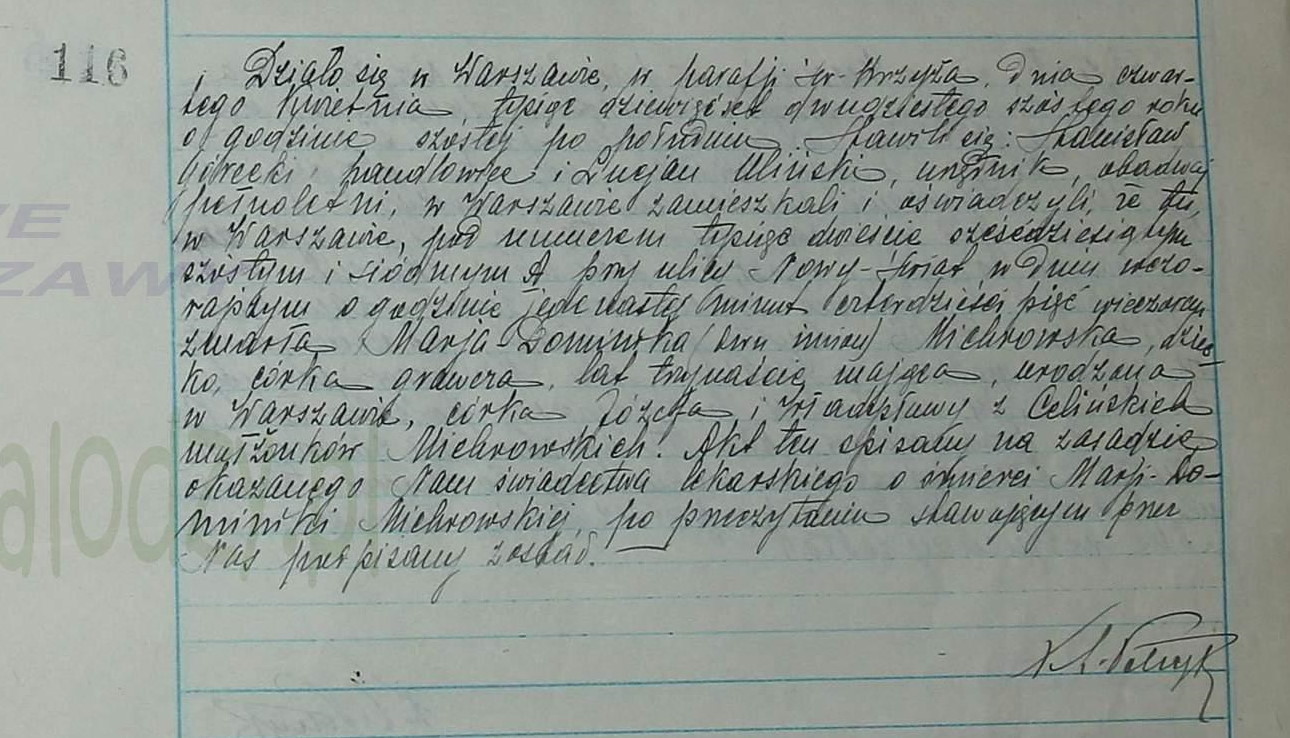 116
Działo się w Warszawie, w parafji św. Krzyża, dnia czwar-
tego kwietnia, tysiąc dziewięćset dwudziestego szóstego roku
o godzinie szóstej po południu. Stawili się: Stanisław
Górecki, handlowiec i Lucjan Uliński, urzędnik, obadwaj
pełnoletni, w Warszawie zamieszkali i oświadczyli, że tu,
w Warszawie, pod numerem tysiąc dwieście sześćdziesiątym
szóstym i siódmym A przy ulicy Nowy-Świat w dniu wczo-
rajszym o godzinie jedenastej minut czterdzieści pięć wieczorem
zmarła Marja Dominika (dwu imion) Michrowska, dziec-
ko, córka grawera, lat trzynaście mająca, urodzona
w Warszawie, córka Józefa i Władysławy z Celińskich
małżonków Michrowskich. Akt ten spisany na zasadzie
okazanego Nam świadectwa lekarskiego o śmierci Marji-Do-
miniki Michrowskiej, po przeczytaniu stawającym przez
Nas podpisany został.
ZAW